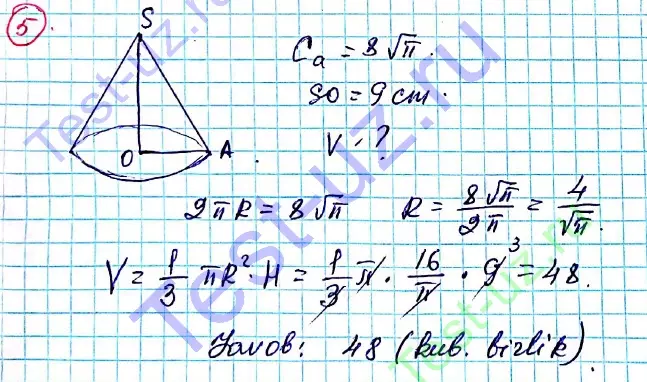 5
S
O
A
Cₐ = 8√π.
SO = 9 cm.
V - ?
2πR = 8√π R = 8√π/2π = 4/√π.
V = 1/3 πR²·H = 1/3 π · 16/π · 9 ³ = 48.
Javob: 48 (kub. birlik)
Test-uz.ru
Test-uz.ru
Test-uz.ru